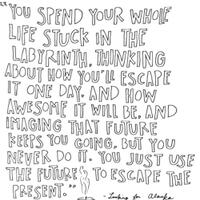 "YOU SPEND YOUR WHOLE
LIFE STUCK IN THE
LABYRINTH, THINKING
ABOUT HOW YOU'LL ESCAPE
IT ONE DAY, AND HOW
AWESOME IT WILL BE, AND
IMAGING THAT FUTURE
KEEPS YOU GOING, BUT YOU
NEVER DO IT. YOU JUST USE
THE FUTURE TO ESCAPE THE
PRESENT."
- Looking for Alaska